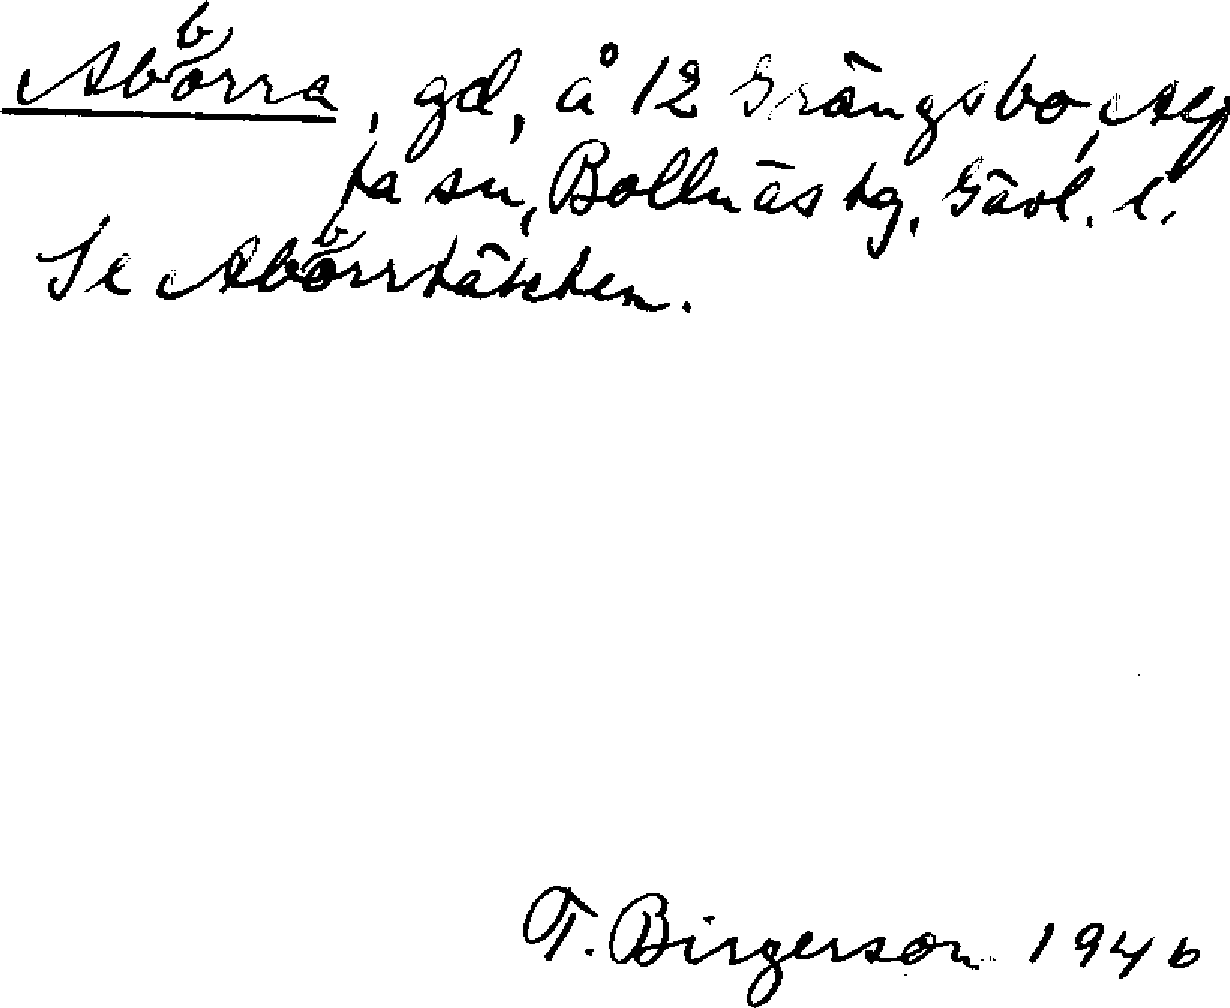 Abborra, gd, å 12 Grängsbo, Alf
ta sn, Bollnäs tg, Gävl. l.
Se Abborrtäkten.
T. Birgerson 1946